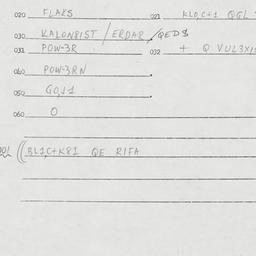 020 FLAKS 021 KLO,C+1 QGL
030 KALONBIST / ERDAR / QED8
031 POW-3R 032 + Q VUL3X1
040 POW-3RN
050
060 O
BL1C+K81 QE RIFA